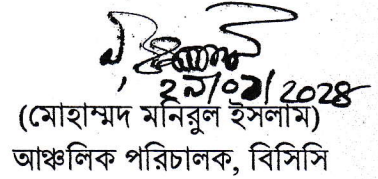 ২৯/০১/2024
(মোহাম্মদ মনিরুল ইসলাম)
আঞ্চলিক পরিচালক, বিসিসি